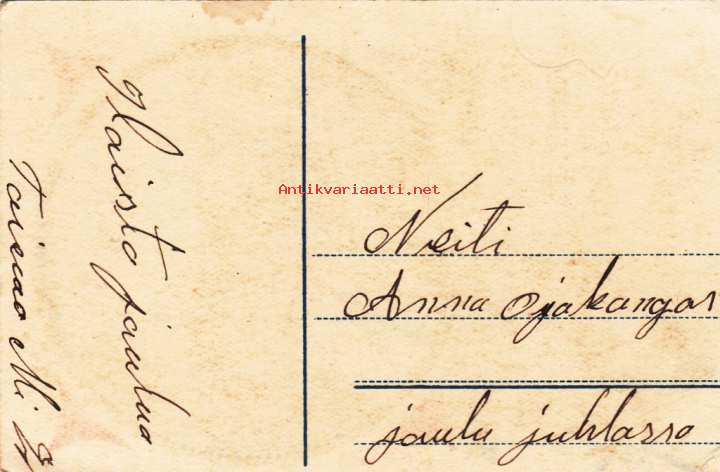 Iloista jaulua
Toivoo M. J.
Antikvariaatti.net
Neiti
Anna Ojakangas
jaulu juhlassa